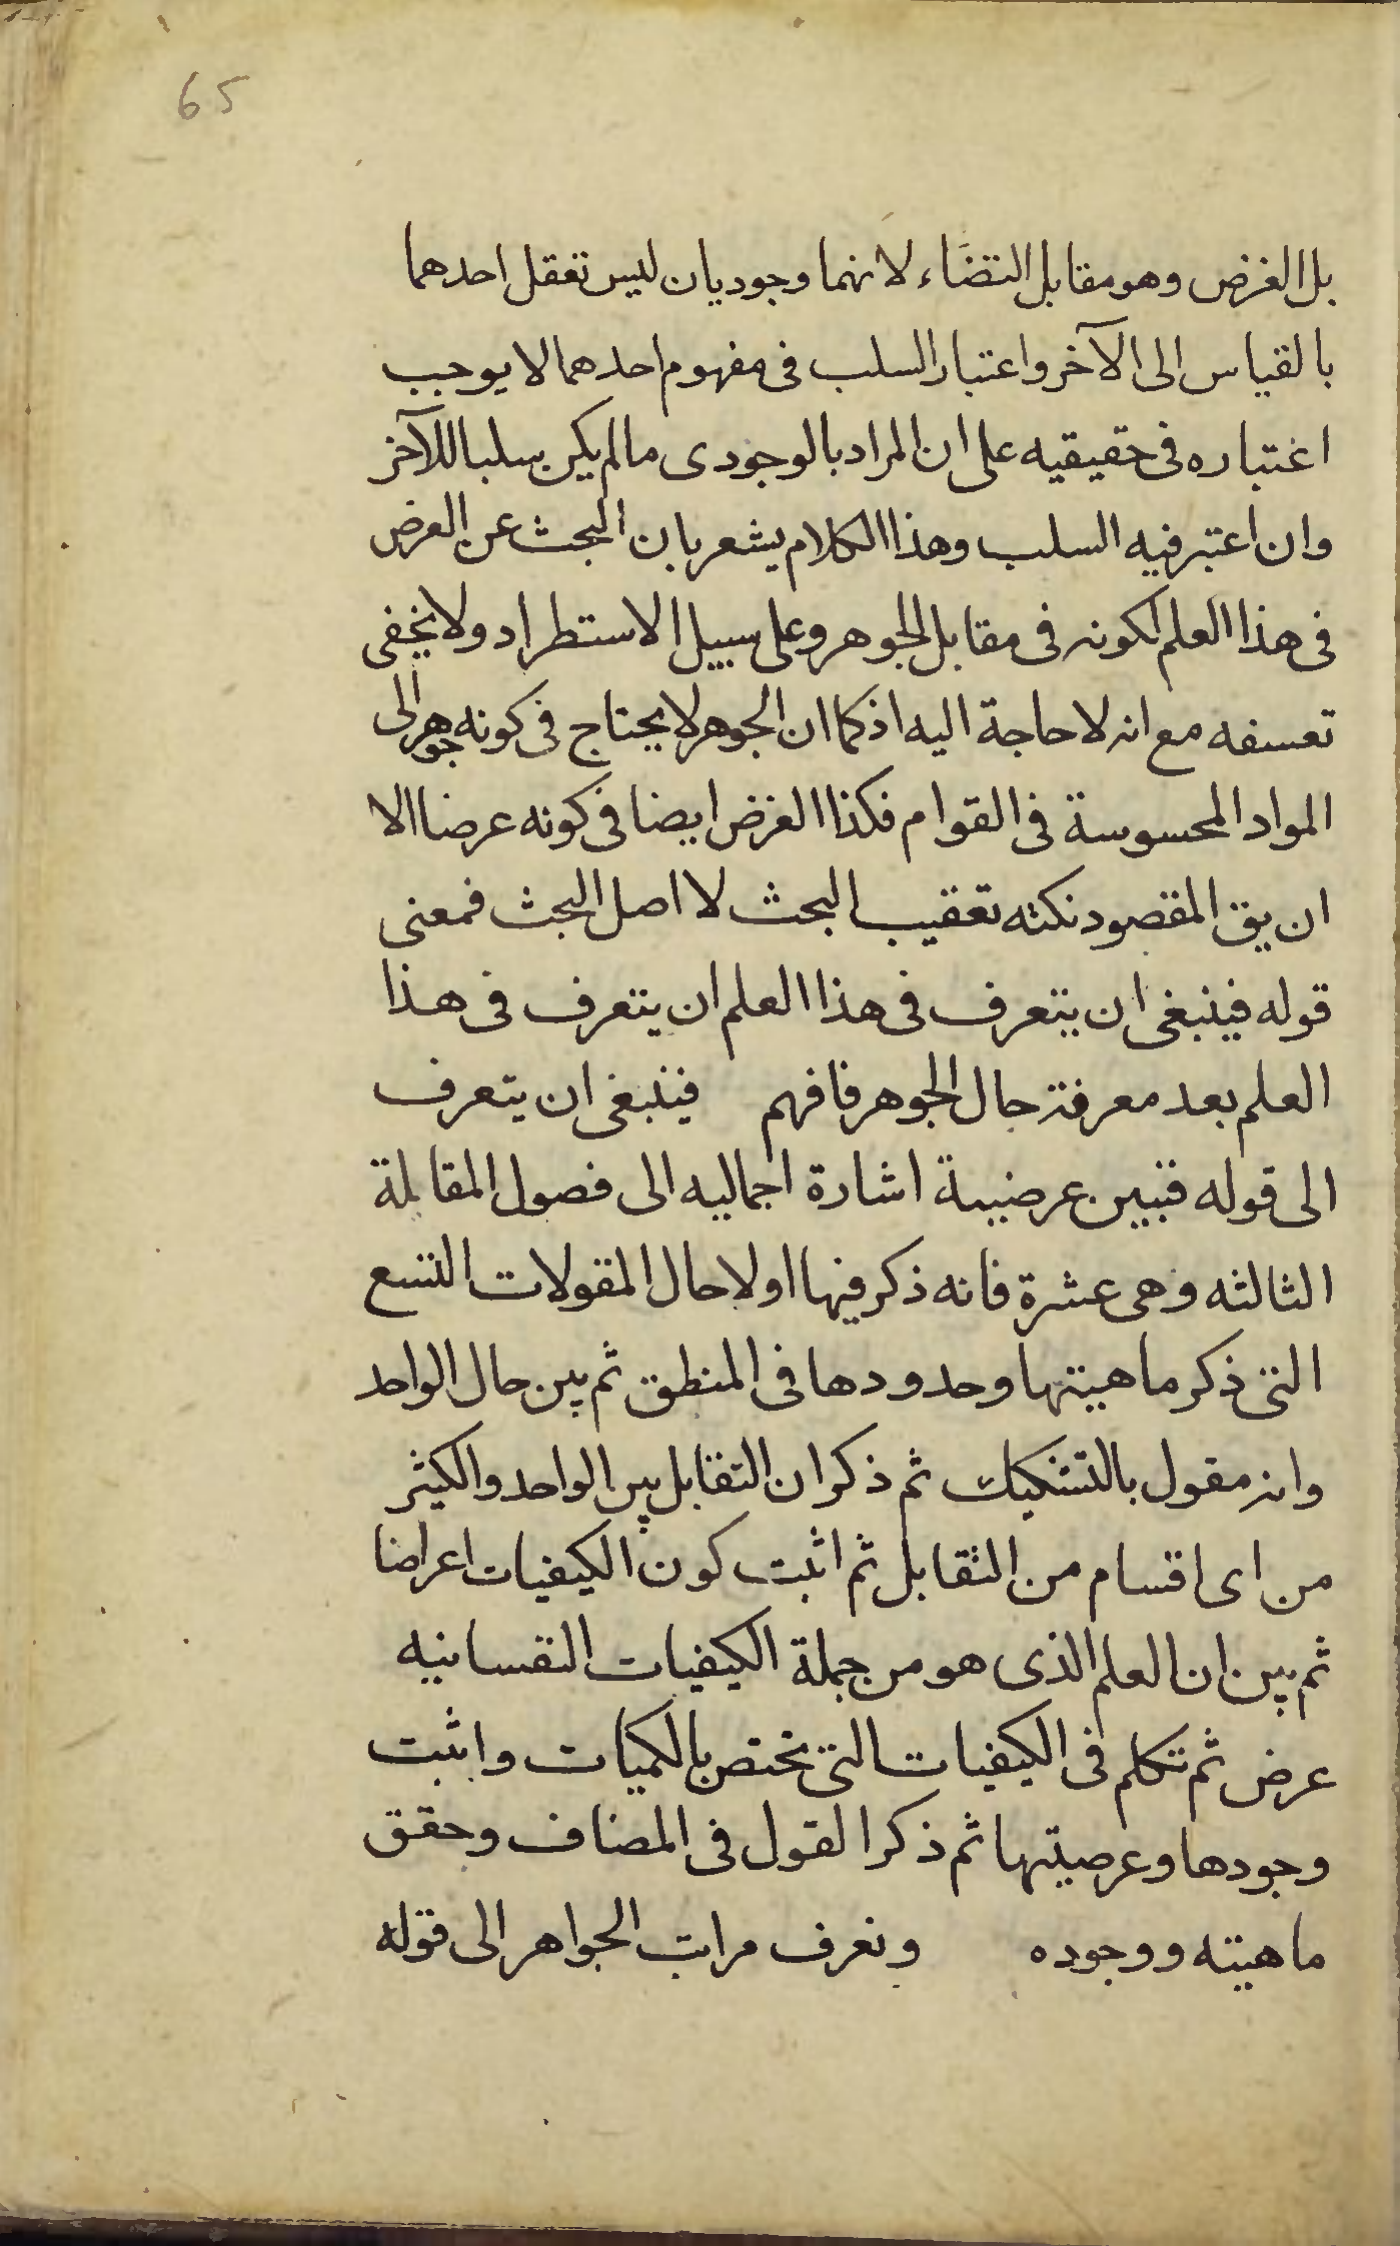 65
بل الغرض وهو مقابل التضاء لانهما وجوديان ليس تعقل احدهما
بالقياس الى الآخر واعتبار السلب فى مفهوم احدهما لا يوجب
اغتباره فى حقيقيه على ان المراد بالوجودى ما لم يكن سلبا للآخر
وان اعتبر فيه السلب وهذا الكلام يشعر بان البحث عن العرض
فى هذا العلم لكونه فى مقابل الجوهر وعلى سبيل الاستطراد ولا يخفى
تعسفه مع انه لا حاجة اليه اذ كما ان الجوهر لا يحتاج فى كونه جوهر الى
المواد المحسوسة فى القوام فكذا الغرض ايضا فى كونه عرضا الا
ان يق المقصود نكته تعقيب البحث لا اصل البحث فمعنى
قوله فينبغى ان يتعرف فى هذا العلم ان يتعرف فى هذا
العلم بعد معرفة حال الجوهر فافهم فينبغى ان يتعرف
الى قوله فتبين عرضيية اشارة اجماليه الى فصول المقابلة
الثالثه وهى عشرة فانه ذكر فيها اولا حال المقولات التسع
التى ذكر ماهيتها وحدودها فى المنطق ثم بين حال الواحد
وانه مقول بالتشكيك ثم ذكر ان التقابل بين الواحد والكيثر
من اى اقسام من التقابل ثم اثبت كون الكيفيات اعراضا
ثم بين ان العلم الذى هو من جملة الكيفيات النفسانيه
عرض ثم تكلم فى الكيفيات التى تختص بالكميات واثبت
وجودها وعرصيتها ثم ذكر القول فى المضاف وحقق
ماهيته ووجوده ونعرف مراتب الجواهر الى قوله